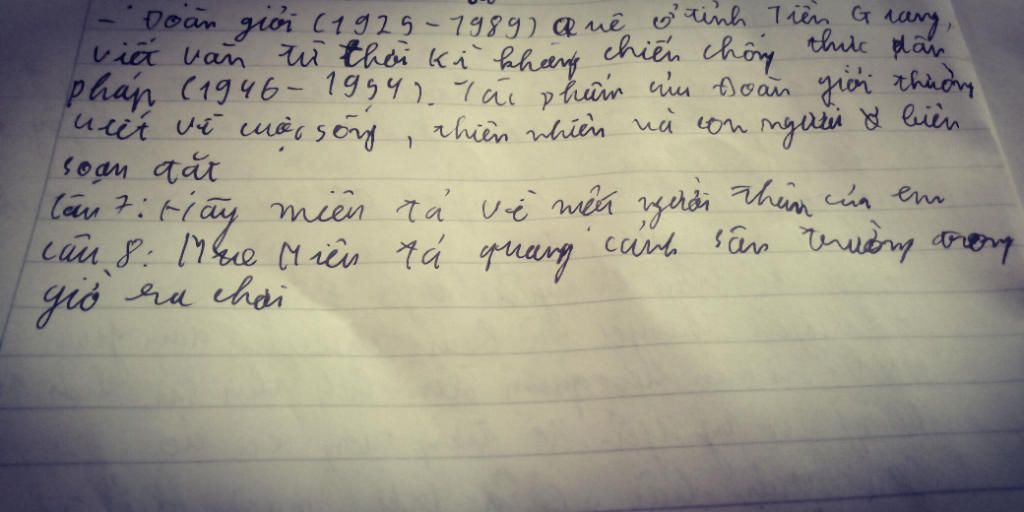 - Đoàn giỏi (1925-1989) Quê ở tỉnh Tiền Giang,
viết văn từ thời kì kháng chiến chống thực dân
pháp (1946-1954). Tác phẩm của Đoàn giỏi thường
viết về cuộc sống, thiên nhiên và con người
soạn đất
Câu 7: Hãy miên tả về một người thân của em
câu 8: Miên tả quang cảnh sân trường trong
giờ ra chơi